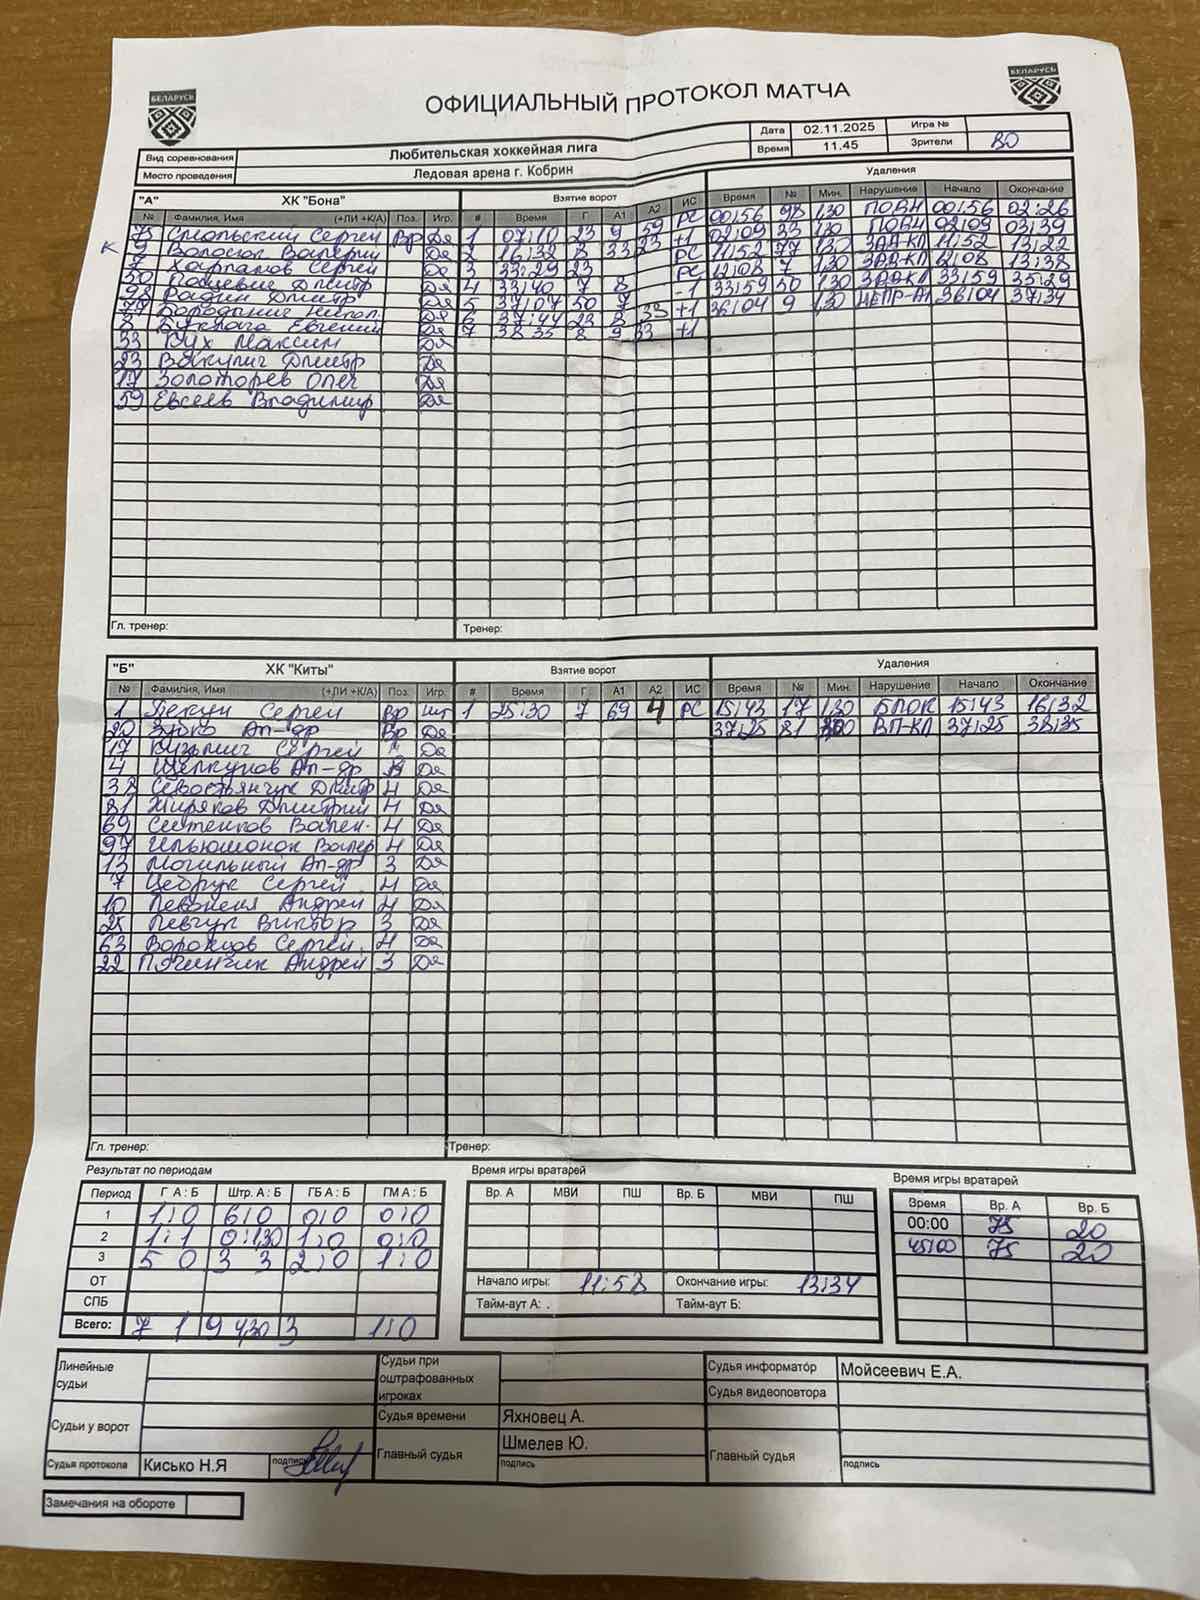 БЕЛАРУСЬ
БЕЛАРУСЬ
ОФИЦИАЛЬНЫЙ ПРОТОКОЛ МАТЧА
Вид соревнования Любительская хоккейная лига Дата 02.11.2025 Игра №
Место проведения Ледовая арена г. Кобрин Время 11.45 Зрители 80
"А" ХК "Бона" Взятие ворот Удаления
№ Фамилия, Имя (+ЛИ +К/А) Поз. Игр. # Время Г А1 А2 ИС Время № Мин. Нарушение Начало Окончание
75 Смольский Сергей Вр Да 1 07:10 23 9 59 РС 00:56 98 1,30 ПОВН 00:56 02:26
К 9 Волосюк Валерий Да 2 16:32 8 33 23 +1 02:09 33 1,30 ПОВН 02:09 03:39
7 Харламов Сергей Да 3 33:29 23 РС 11:52 77 1,30 ЗАД-КЛ 11:52 13:22
50 Дмитр Да 4 33:40 7 8 РС 12:08 7 1,30 ЗАД-КЛ 12:08 13:38
98 Радин Дмитр Да 5 37:07 50 7 -1 33:59 50 1,30 ЗАД-КЛ 33:59 35:29
77 Бородынич Никол. Да 6 37:44 23 8 33 +1 36:04 9 1,30 НЕПР-АТ 36:04 37:34
8 Евгений Да 7 38:35 8 9 33 +1
33 Кух Максим Да
23 Вакулич Дмитр Да
17 Золоторев Олег Да
59 Евсеев Владимир Да
Гл. тренер: Тренер:
"Б" ХК "Киты" Взятие ворот Удаления
№ Фамилия, Имя (+ЛИ +К/А) Поз. Игр. # Время Г А1 А2 ИС Время № Мин. Нарушение Начало Окончание
1 Пекун Сергей Вр 1 25:30 7 69 4 РС 15:43 17 1,30 БЛОК 15:43 16:32
20 Зубко Ал-др Вр Да 37:25 81 ВП-КЛ 37:25 38:35
17 Кузьмич Сергей Да
4 Щелкунов Ал-др Да
38 Севостьянчук Дмитр 4 Да
81 Жиряков Дмитрий 4 Да
69 Вален. 4 Да
97 Ильюшонок Валер 4 Да
13 Могильный Ал-др 3 Да
7 Цебрук Сергей 4 Да
10 Андрей 4 Да
25 Левчук Виктор 3 Да
63 Воронцов Сергей 4 Да
22 Андрей 3 Да
Гл. тренер: Тренер:
Результат по периодам Время игры вратарей Время игры вратарей
Период Г А : Б Штр. А : Б ГБ А : Б ГМ А : Б Вр. А МВИ ПШ Вр. Б МВИ ПШ Время Вр. А Вр. Б
1 1:0 6:0 0:0 0:0 00:00 75 20
2 1:1 0:1,30 1:0 0:0 45:00 75 20
3 5 0 3 3 2:0 1:0
ОТ Начало игры: 11:58 Окончание игры: 13:34
СПБ Тайм-аут А: . Тайм-аут Б:
Всего: 7 1 9 4,30 3 1:0
Линейные судьи Судьи при оштрафованных игроках Судья информатор Мойсеевич Е.А.
Судья видеоповтора
Судьи у ворот Судья времени Яхновец А.
Главный судья Шмелев Ю. Главный судья
Судья протокола Кисько Н.Я подпись подпись подпись
Замечания на обороте